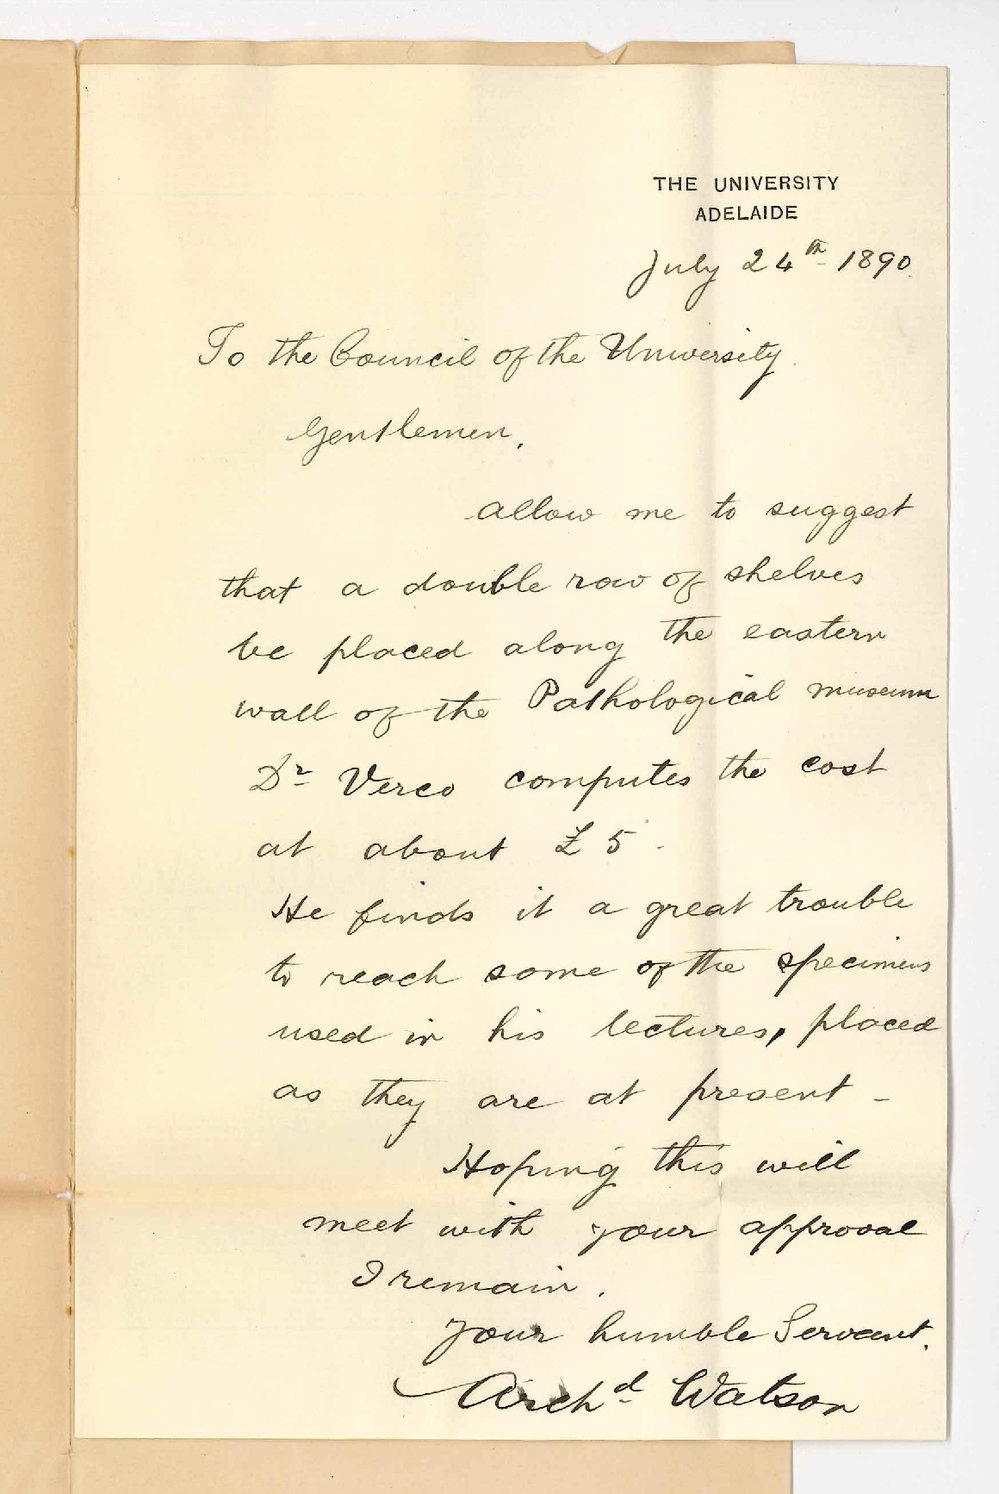 THE UNIVERSITY
ADELAIDE
July 24th 1890.
To the Council of the University.
Gentlemen,
Allow me to suggest
that a double row of shelves
be placed along the eastern
wall of the Pathological museum
Dr Verco computes the cost
at about £5.
He finds it a great trouble
to reach some of the specimens
used in his lectures, placed
as they are at present -
Hoping this will
meet with your approval
I remain.
Your humble Servant.
Archd Watson